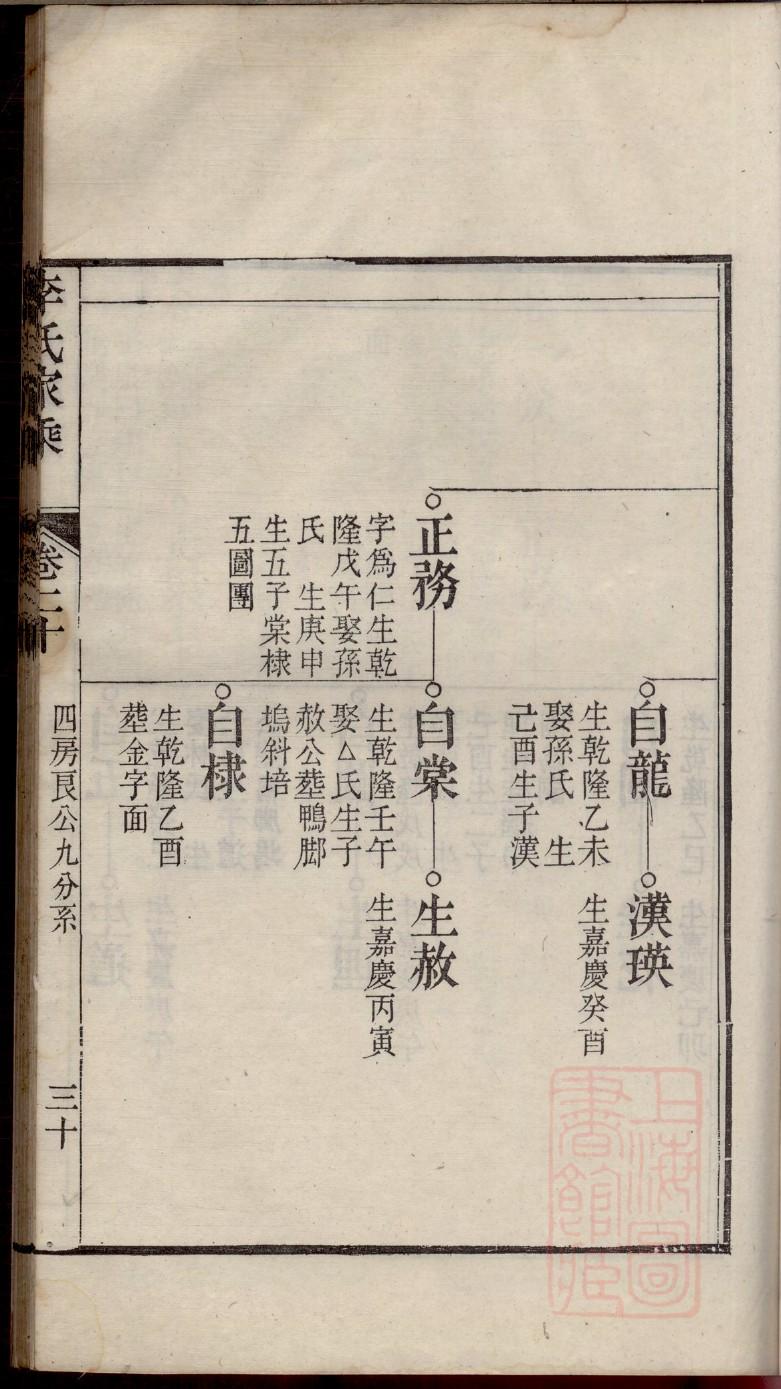 自龍
生乾隆乙未
娶孫氏　生
己酉生子漢
漢瑛
生嘉慶癸酉
正務
字為仁生乾
隆戊午娶孫
氏　生庚申
生五子棠棣
五圖團
自棠
生乾隆壬午
娶△氏生子
赦公塟鴨脚
塢斜培
生赦
生嘉慶丙寅
自棣
生乾隆乙酉
塟金字面
李氏家乘
卷二十
四房良公九分系
三十
上海圖
書館藏